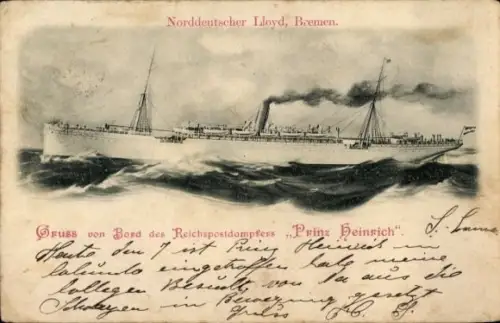 Norddeutscher Lloyd, Bremen.
Gruss von Bord des Reichspostdampfers „Prinz Heinrich".
Heute den 7 ist Prinz Heinrich in
eingetroffen habe meine
Collegen Besucht von da aus die
in Bewegung gesetzt
Gruss